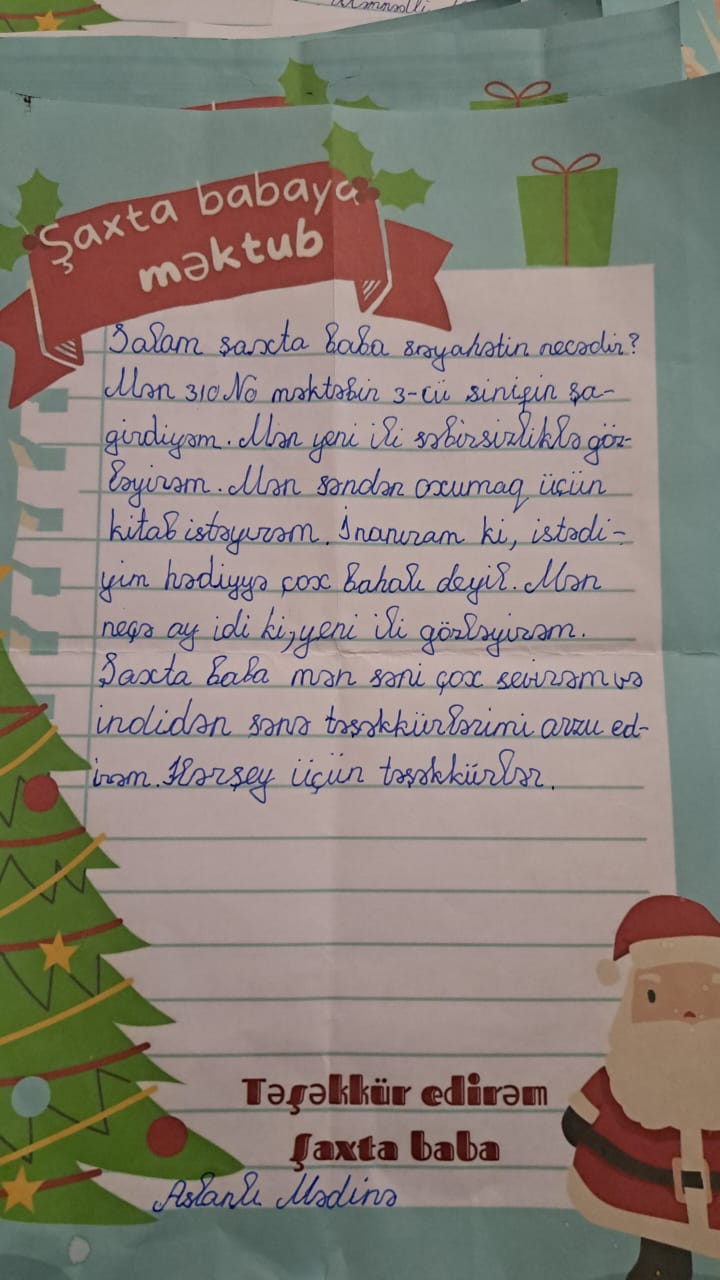 Şaxta babaya
məktub
Salam şaxta baba səyahətin necədir?
Mən 310 No məktəbin 3-cü sinifin şa-
girdiyəm. Mən yeni ili səbirsizliklə göz-
ləyirəm. Mən səndən oxumaq üçün
kitab istəyirəm. İnanıram ki, istədi-
yim hədiyyə çox bahalı deyil. Mən
neçə ay idi ki, yeni ili gözləyirəm.
Şaxta baba mən səni çox sevirəm və
indidən sənə təşəkkürlərimi arzu ed-
irəm. Hərşey üçün təşəkkürlər.
Təşəkkür edirəm
Şaxta baba
Aslanlı Mədinə